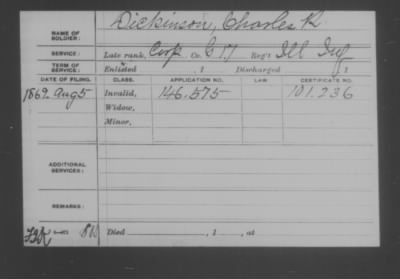 NAME OF SOLDIER: Dickinson, Charles R.
SERVICE: Late rank, Corp Co. C 17 Reg't Ill Inf
TERM OF SERVICE: Enlisted , 1 Discharged 1
DATE OF FILING. CLASS. APPLICATION NO. LAW. CERTIFICATE NO.
1869 Aug 5 Invalid, 146.575 101.236
Widow,
Minor,
ADDITIONAL SERVICES:
REMARKS:
Died , 1 , at